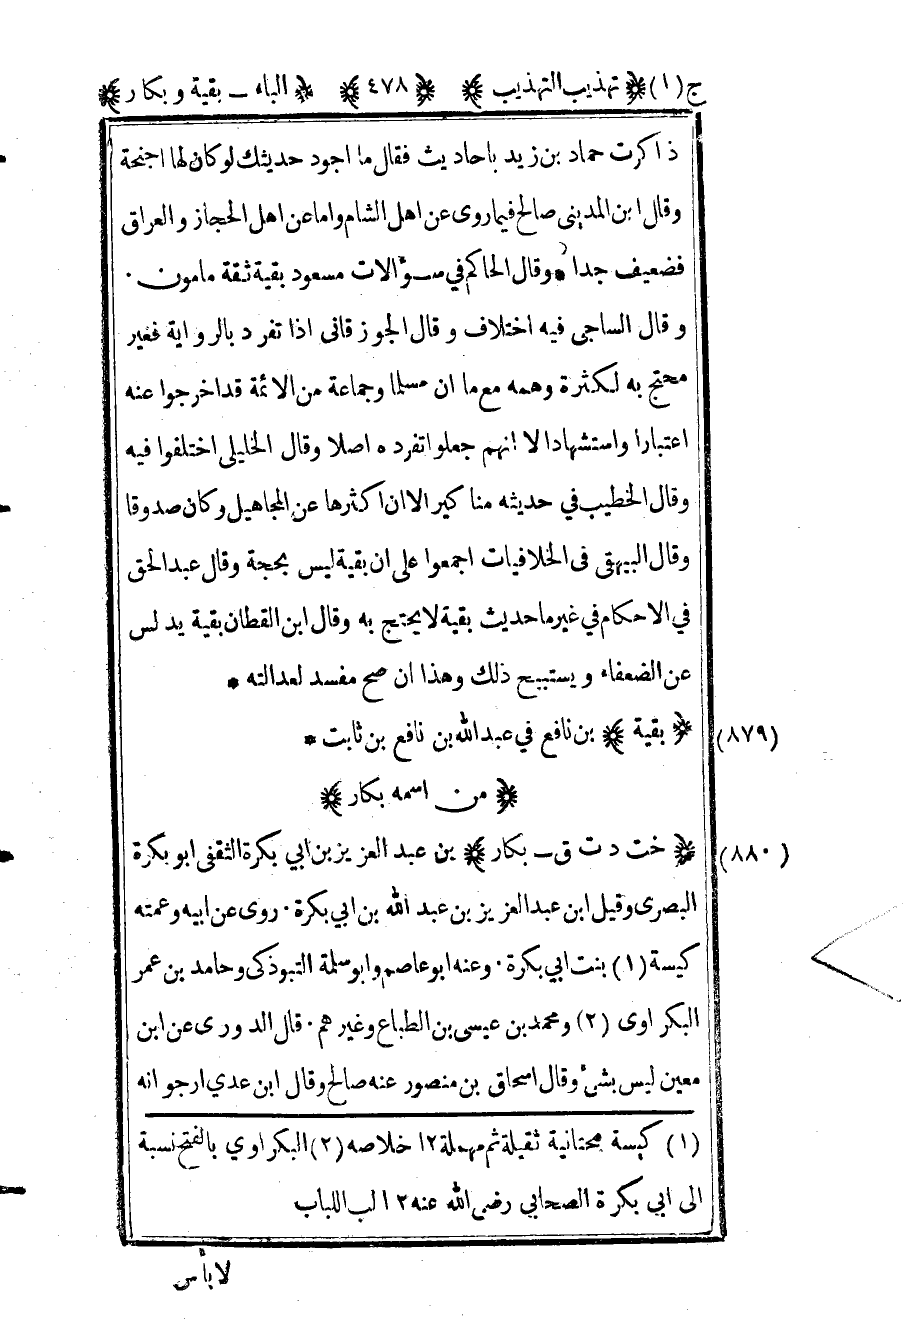 ج (١) ﴿ تهذيب التهذيب ﴾ ﴿ ٤٧٨ ﴾ ﴿ الباء ـ بقية و بكار ﴾
ذاكرت حماد بن زيد باحاديث فقال ما اجود حديثك لوكان لها اجنحة
وقال ابن المدينى صالح فيما روى عن اهل الشام واما عن اهل الحجاز والعراق
فضعيف جدا * وقال الحاكم في سؤالات مسعود بقية ثقة مامون ·
وقال الساجى فيه اختلاف وقال الجوزقانى اذا تفرد بالرواية فغير
محتج به لكثرة وهمه مع ما ان مسلما وجماعة من الائمة قد اخرجوا عنه
اعتبارا واستشهادا الا انهم جعلوا تفرده اصلا وقال الخليلى اختلفوا فيه
وقال الخطيب في حديثه مناكير الا ان اكثرها عن المجاهيل وكان صدوقا
وقال البيهقى فى الخلافيات اجمعوا على ان بقية ليس بحجة وقال عبد الحق
في الاحكام في غير ما حديث بقية لا يحتج به وقال ابن القطان بقية يدلس
عن الضعفاء ويستبيح ذلك وهذا ان صح مفسد لعدالته *
(٨٧٩) ﴿ بقية ﴾ بن نافع في عبد الله بن نافع بن ثابت *
﴿ من اسمه بكار ﴾
(٨٨٠) ﴿ خت د ت ق ـ بكار ﴾ بن عبد العزيز بن ابي بكرة الثقفى ابو بكرة
البصرى وقيل ابن عبد العزيز بن عبد الله بن ابي بكرة · روى عن ابيه وعمته
كيسة (١) بنت ابي بكرة · وعنه ابو عاصم وابو سلمة التبوذكى وحامد بن عمر
البكراوى (٢) ومحمد بن عيسى بن الطباع وغيرهم · قال الدورى عن ابن
معين ليس بشئ وقال اسحاق بن منصور عنه صالح وقال ابن عدي ارجو انه
(١) كيسة بحتانية ثقيلة ثم مهملة ١٢ خلاصه (٢) البكراوي بالفتح نسبة
الى ابي بكرة الصحابي رضى الله عنه ١٢ لب اللباب
لا بأس